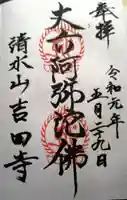 奉拝
令和元年
五月二十九日
大百阿弥陀佛
清水山吉田寺